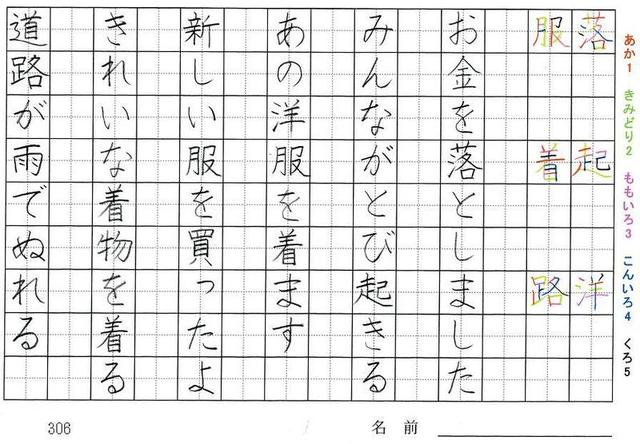 あか1 きみどり2 ももいろ3 こんいろ4 くろ5
落 起 洋
服 着 路
お金を落としました
みんながとび起きる
あの洋服を着ます
新しい服を買ったよ
きれいな着物を着る
道路が雨でぬれる
306 名前